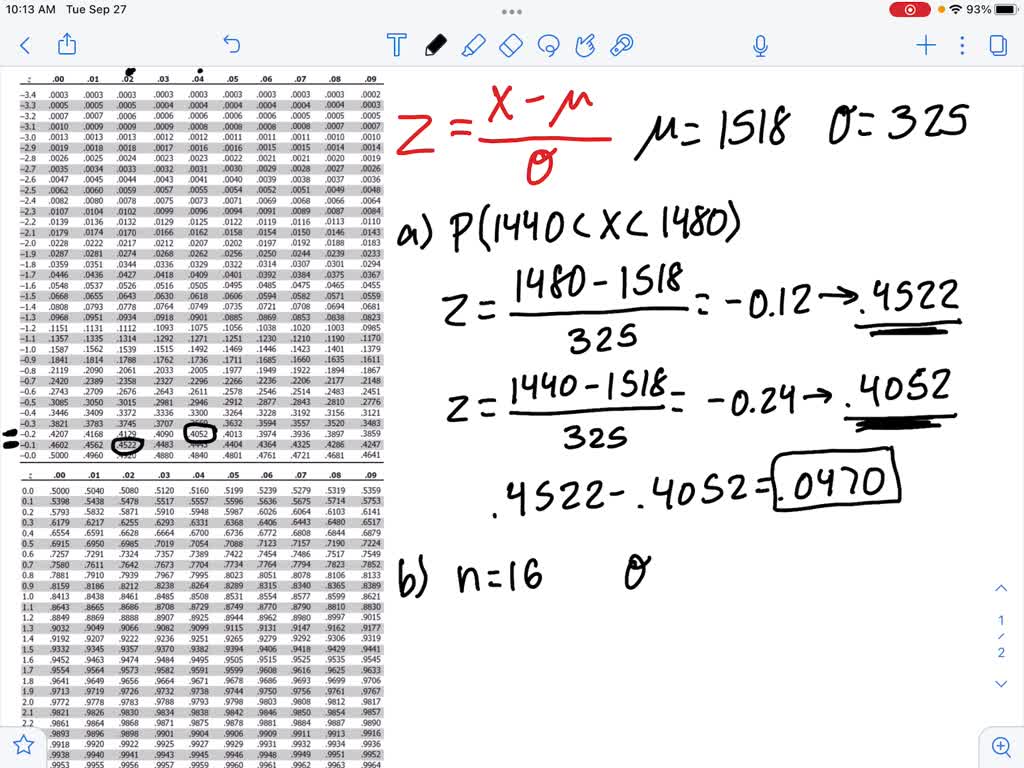 10:13 AM Tue Sep 27
93%
z .00 .01 .02 .03 .04 .05 .06 .07 .08 .09
−3.4 .0003 .0003 .0003 .0003 .0003 .0003 .0003 .0003 .0003 .0002
−3.3 .0005 .0005 .0005 .0004 .0004 .0004 .0004 .0004 .0004 .0003
−3.2 .0007 .0007 .0006 .0006 .0006 .0006 .0006 .0005 .0005 .0005
−3.1 .0010 .0009 .0009 .0009 .0008 .0008 .0008 .0008 .0007 .0007
−3.0 .0013 .0013 .0013 .0012 .0012 .0011 .0011 .0011 .0010 .0010
−2.9 .0019 .0018 .0018 .0017 .0016 .0016 .0015 .0015 .0014 .0014
−2.8 .0026 .0025 .0024 .0023 .0023 .0022 .0021 .0021 .0020 .0019
−2.7 .0035 .0034 .0033 .0032 .0031 .0030 .0029 .0028 .0027 .0026
−2.6 .0047 .0045 .0044 .0043 .0041 .0040 .0039 .0038 .0037 .0036
−2.5 .0062 .0060 .0059 .0057 .0055 .0054 .0052 .0051 .0049 .0048
−2.4 .0082 .0080 .0078 .0075 .0073 .0071 .0069 .0068 .0066 .0064
−2.3 .0107 .0104 .0102 .0099 .0096 .0094 .0091 .0089 .0087 .0084
−2.2 .0139 .0136 .0132 .0129 .0125 .0122 .0119 .0116 .0113 .0110
−2.1 .0179 .0174 .0170 .0166 .0162 .0158 .0154 .0150 .0146 .0143
−2.0 .0228 .0222 .0217 .0212 .0207 .0202 .0197 .0192 .0188 .0183
−1.9 .0287 .0281 .0274 .0268 .0262 .0256 .0250 .0244 .0239 .0233
−1.8 .0359 .0351 .0344 .0336 .0329 .0322 .0314 .0307 .0301 .0294
−1.7 .0446 .0436 .0427 .0418 .0409 .0401 .0392 .0384 .0375 .0367
−1.6 .0548 .0537 .0526 .0516 .0505 .0495 .0485 .0475 .0465 .0455
−1.5 .0668 .0655 .0643 .0630 .0618 .0606 .0594 .0582 .0571 .0559
−1.4 .0808 .0793 .0778 .0764 .0749 .0735 .0721 .0708 .0694 .0681
−1.3 .0968 .0951 .0934 .0918 .0901 .0885 .0869 .0853 .0838 .0823
−1.2 .1151 .1131 .1112 .1093 .1075 .1056 .1038 .1020 .1003 .0985
−1.1 .1357 .1335 .1314 .1292 .1271 .1251 .1230 .1210 .1190 .1170
−1.0 .1587 .1562 .1539 .1515 .1492 .1469 .1446 .1423 .1401 .1379
−0.9 .1841 .1814 .1788 .1762 .1736 .1711 .1685 .1660 .1635 .1611
−0.8 .2119 .2090 .2061 .2033 .2005 .1977 .1949 .1922 .1894 .1867
−0.7 .2420 .2389 .2358 .2327 .2296 .2266 .2236 .2206 .2177 .2148
−0.6 .2743 .2709 .2676 .2643 .2611 .2578 .2546 .2514 .2483 .2451
−0.5 .3085 .3050 .3015 .2981 .2946 .2912 .2877 .2843 .2810 .2776
−0.4 .3446 .3409 .3372 .3336 .3300 .3264 .3228 .3192 .3156 .3121
−0.3 .3821 .3783 .3745 .3707 .3632 .3594 .3557 .3520 .3483
−0.2 .4207 .4168 .4129 .4090 .4052 .4013 .3974 .3936 .3897 .3859
−0.1 .4602 .4562 .4522 .4483 .4404 .4364 .4325 .4286 .4247
−0.0 .5000 .4960 .4880 .4840 .4801 .4761 .4721 .4681 .4641
z .00 .01 .02 .03 .04 .05 .06 .07 .08 .09
0.0 .5000 .5040 .5080 .5120 .5160 .5199 .5239 .5279 .5319 .5359
0.1 .5398 .5438 .5478 .5517 .5557 .5596 .5636 .5675 .5714 .5753
0.2 .5793 .5832 .5871 .5910 .5948 .5987 .6026 .6064 .6103 .6141
0.3 .6179 .6217 .6255 .6293 .6331 .6368 .6406 .6443 .6480 .6517
0.4 .6554 .6591 .6628 .6664 .6700 .6736 .6772 .6808 .6844 .6879
0.5 .6915 .6950 .6985 .7019 .7054 .7088 .7123 .7157 .7190 .7224
0.6 .7257 .7291 .7324 .7357 .7389 .7422 .7454 .7486 .7517 .7549
0.7 .7580 .7611 .7642 .7673 .7704 .7734 .7764 .7794 .7823 .7852
0.8 .7881 .7910 .7939 .7967 .7995 .8023 .8051 .8078 .8106 .8133
0.9 .8159 .8186 .8212 .8238 .8264 .8289 .8315 .8340 .8365 .8389
1.0 .8413 .8438 .8461 .8485 .8508 .8531 .8554 .8577 .8599 .8621
1.1 .8643 .8665 .8686 .8708 .8729 .8749 .8770 .8790 .8810 .8830
1.2 .8849 .8869 .8888 .8907 .8925 .8944 .8962 .8980 .8997 .9015
1.3 .9032 .9049 .9066 .9082 .9099 .9115 .9131 .9147 .9162 .9177
1.4 .9192 .9207 .9222 .9236 .9251 .9265 .9279 .9292 .9306 .9319
1.5 .9332 .9345 .9357 .9370 .9382 .9394 .9406 .9418 .9429 .9441
1.6 .9452 .9463 .9474 .9484 .9495 .9505 .9515 .9525 .9535 .9545
1.7 .9554 .9564 .9573 .9582 .9591 .9599 .9608 .9616 .9625 .9633
1.8 .9641 .9649 .9656 .9664 .9671 .9678 .9686 .9693 .9699 .9706
1.9 .9713 .9719 .9726 .9732 .9738 .9744 .9750 .9756 .9761 .9767
2.0 .9772 .9778 .9783 .9788 .9793 .9798 .9803 .9808 .9812 .9817
2.1 .9821 .9826 .9830 .9834 .9838 .9842 .9846 .9850 .9854 .9857
2.2 .9861 .9864 .9868 .9871 .9875 .9878 .9881 .9884 .9887 .9890
.9893 .9896 .9898 .9901 .9904 .9906 .9909 .9911 .9913 .9916
.9918 .9920 .9922 .9925 .9927 .9929 .9931 .9932 .9934 .9936
.9938 .9940 .9941 .9943 .9945 .9946 .9948 .9949 .9951 .9952
.9953 .9955 .9956 .9957 .9959 .9960 .9961 .9962 .9963 .9964
Z = X − μ / σ μ = 1518 σ = 325
a) P(1440 < X < 1480)
Z = 1480 − 1518 / 325 = −0.12 → .4522
Z = 1440 − 1518 / 325 = −0.24 → .4052
.4522 − .4052 = .0470
b) n = 16 σ
1
/
2